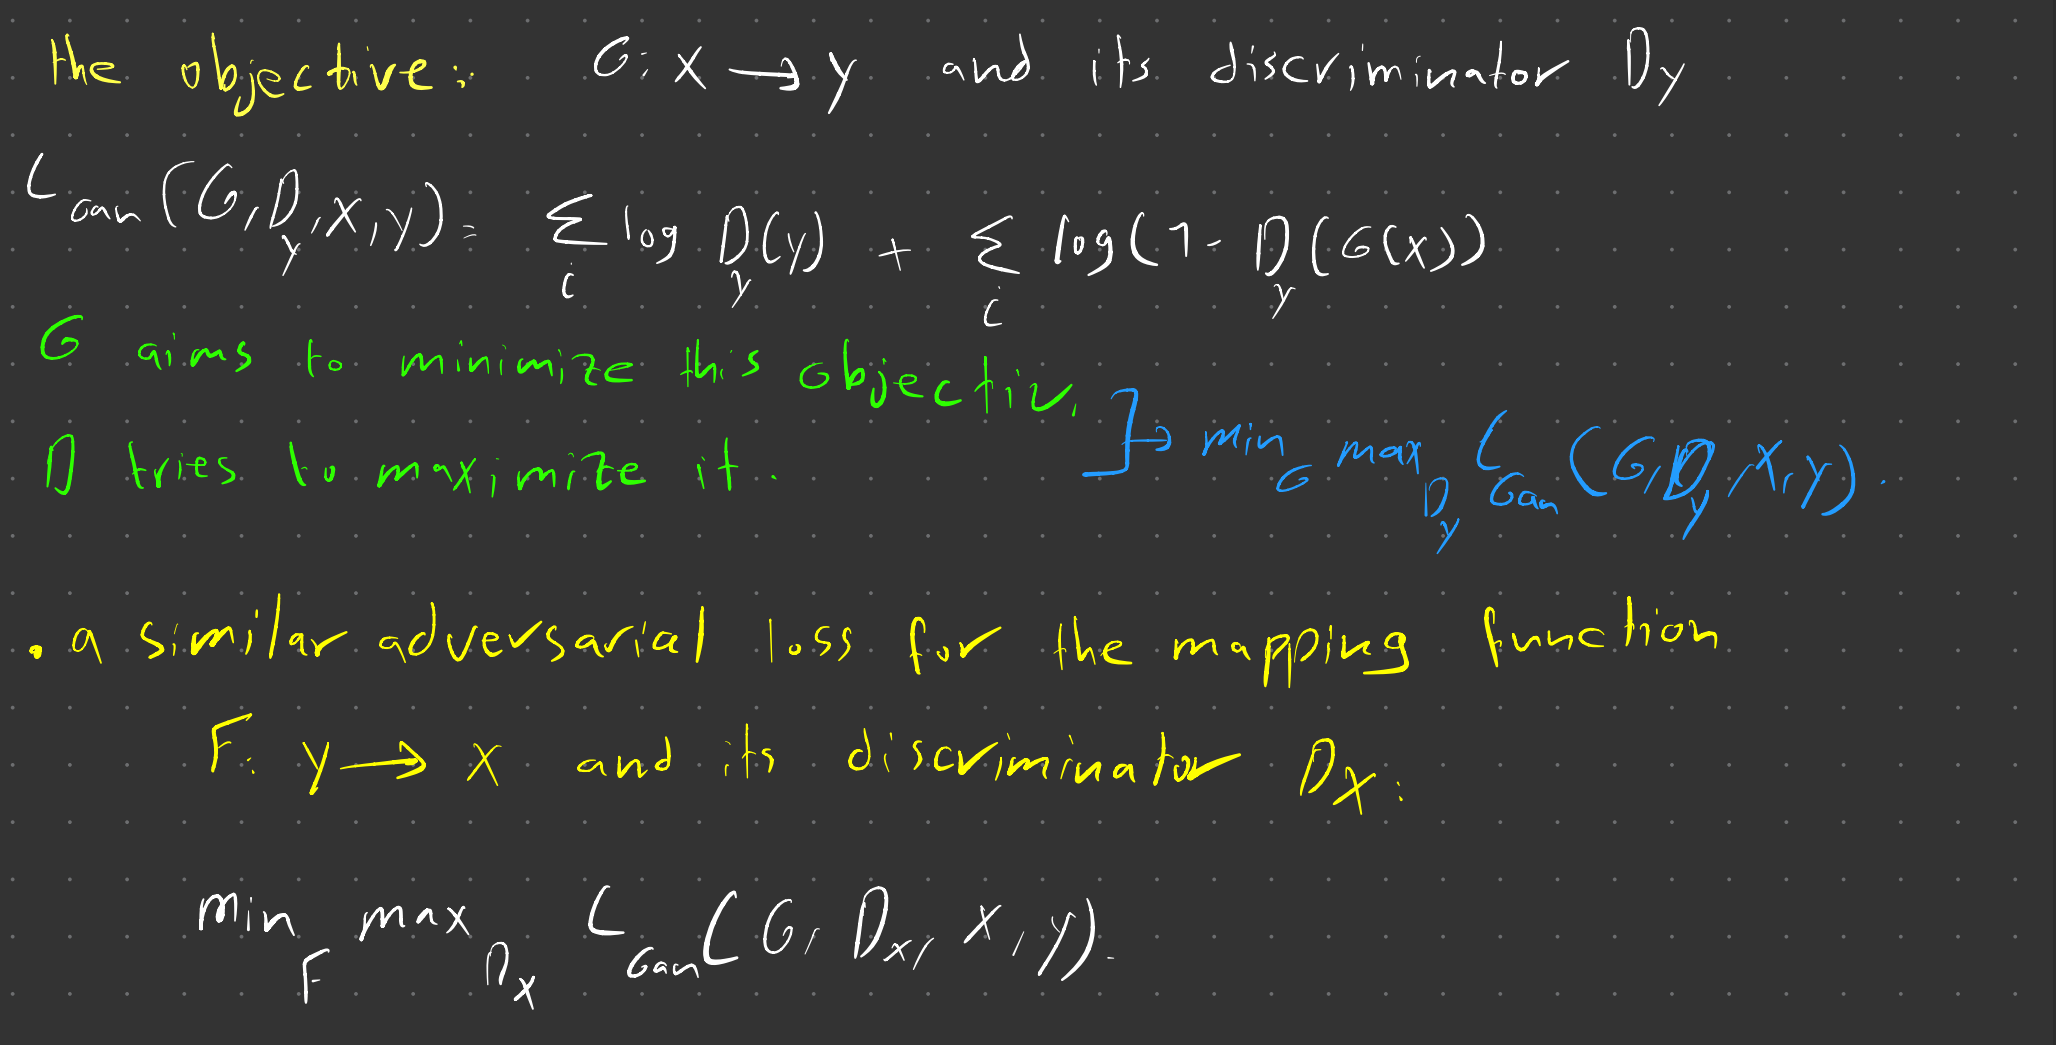 the objective: G: X → y and its discriminator Dy
L Gan (G, Dy, X, y) = Σi log Dy(y) + Σi log(1 - Dy(G(x))
G aims to minimize this objectiv.
D tries to maximize it. ]→ min G max Dy L Gan (G, Dy, X, y).
• a similar adversarial loss for the mapping function
F: y → X and its discriminator Dx:
min F max Dx L Gan (G, Dx, X, y).